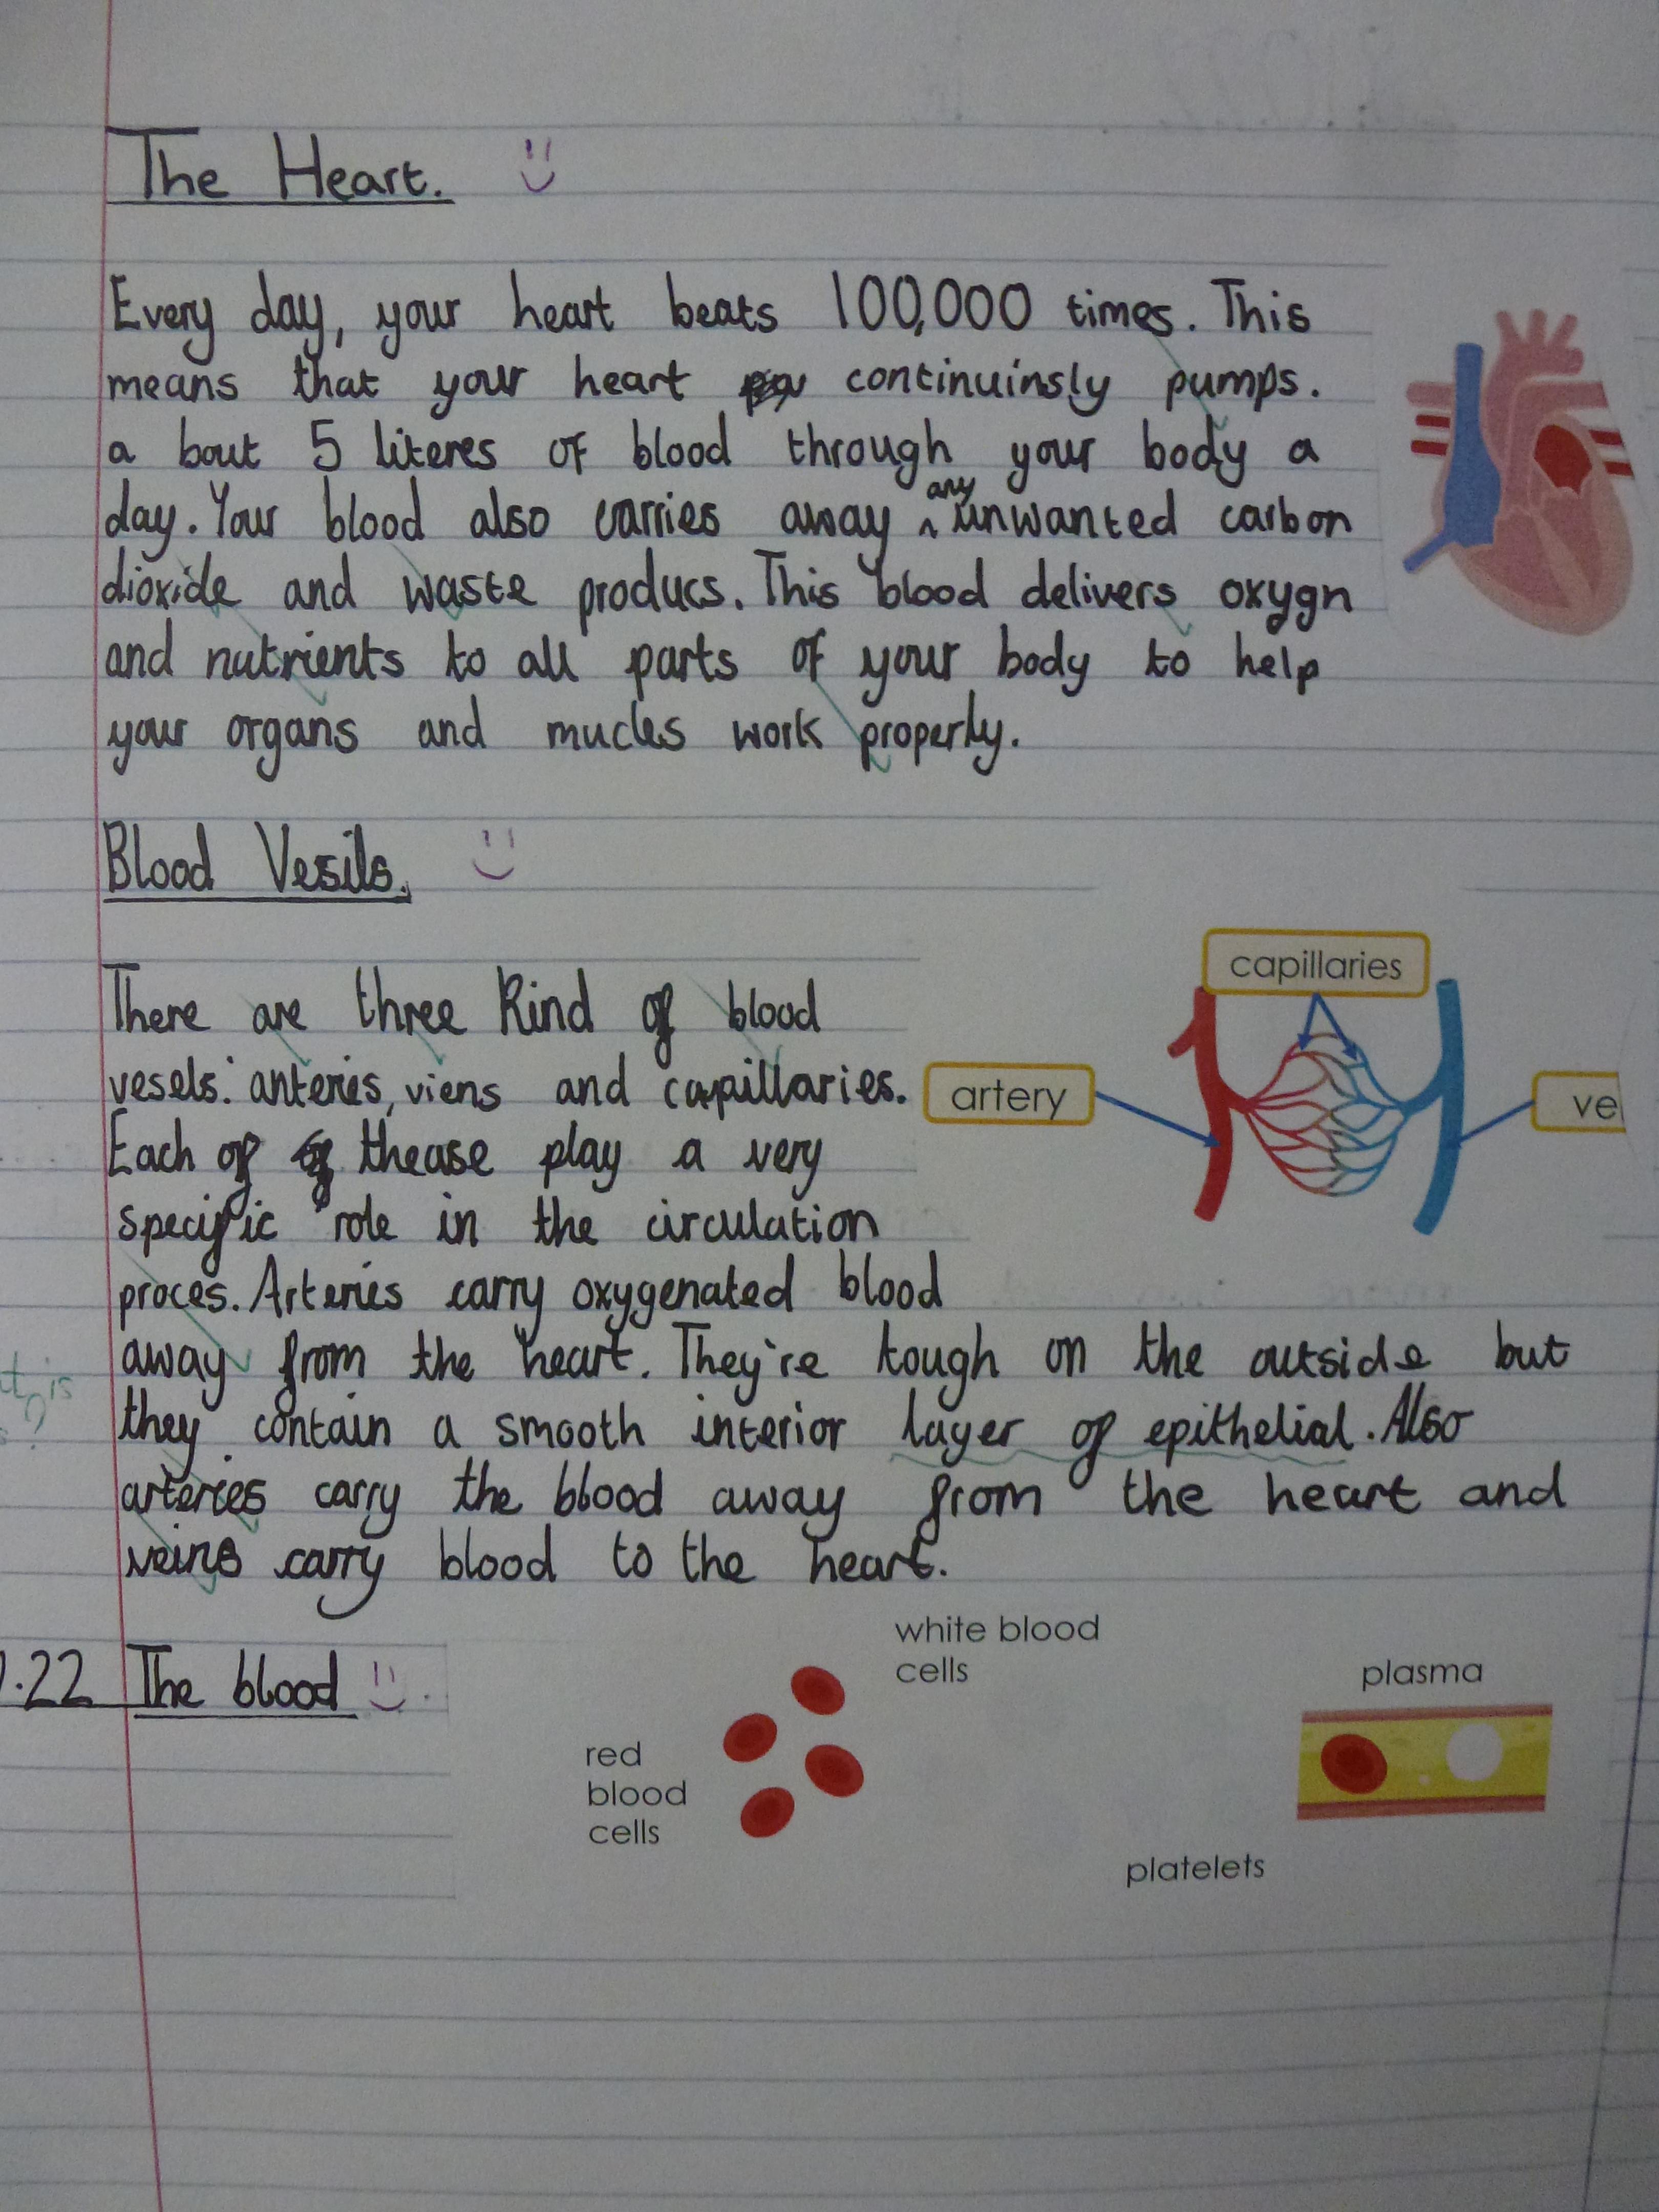 The Heart.
Every day, your heart beats 100,000 times. This
means that your heart continuinsly pumps.
a bout 5 literes of blood through your body a
day. Your blood also carries away any unwanted carbon
dioxide and waste producs. This blood delivers oxygn
and nutrients to all parts of your body to help
your organs and mucles work properly.
Blood Vesils.
capillaries
There are three kind of blood
vesels: arteries, viens and capillaries.
artery
ve
Each of thease play a very
specific role in the circulation
proces. Arteries carry oxygenated blood
away from the heart. They're tough on the outside but
is
they contain a smooth interior layer of epithelial. Also
arteries carry the blood away from the heart and
veins carry blood to the heart.
white blood
cells
.22 The blood
plasma
red
blood
cells
platelets